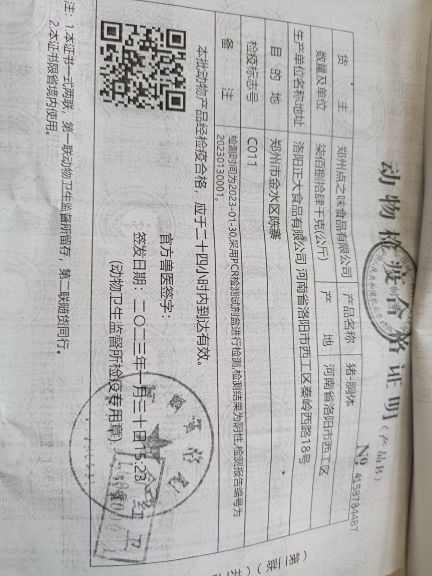 动物检疫合格证明(产品B)
№ 4138784487
货 主 郑州点之味食品有限公司 产品名称 猪-胴体
数量及单位 柒佰捌拾肆千克(公斤) 产 地 河南省洛阳市西工区
生产单位名称地址 洛阳正大食品有限公司 河南省洛阳市西工区秦岭西路18号
目 的 地 郑州市金水区陈寨
检疫标志号 C011
备 注 检测时间为2023-01-30,采用PCR检测试剂盒进行检测,检测结果为阴性,检测报告编号为
20230130001。
本批动物产品经检疫合格,应于二十四小时内到达有效。
官方兽医签字:
签发日期:二〇二三年一月三十日 15:23
(动物卫生监督所检疫专用章)
注:1.本证书一式两联,第一联动物卫生监督所留存,第二联随货同行。
2.本证书限省境内使用。